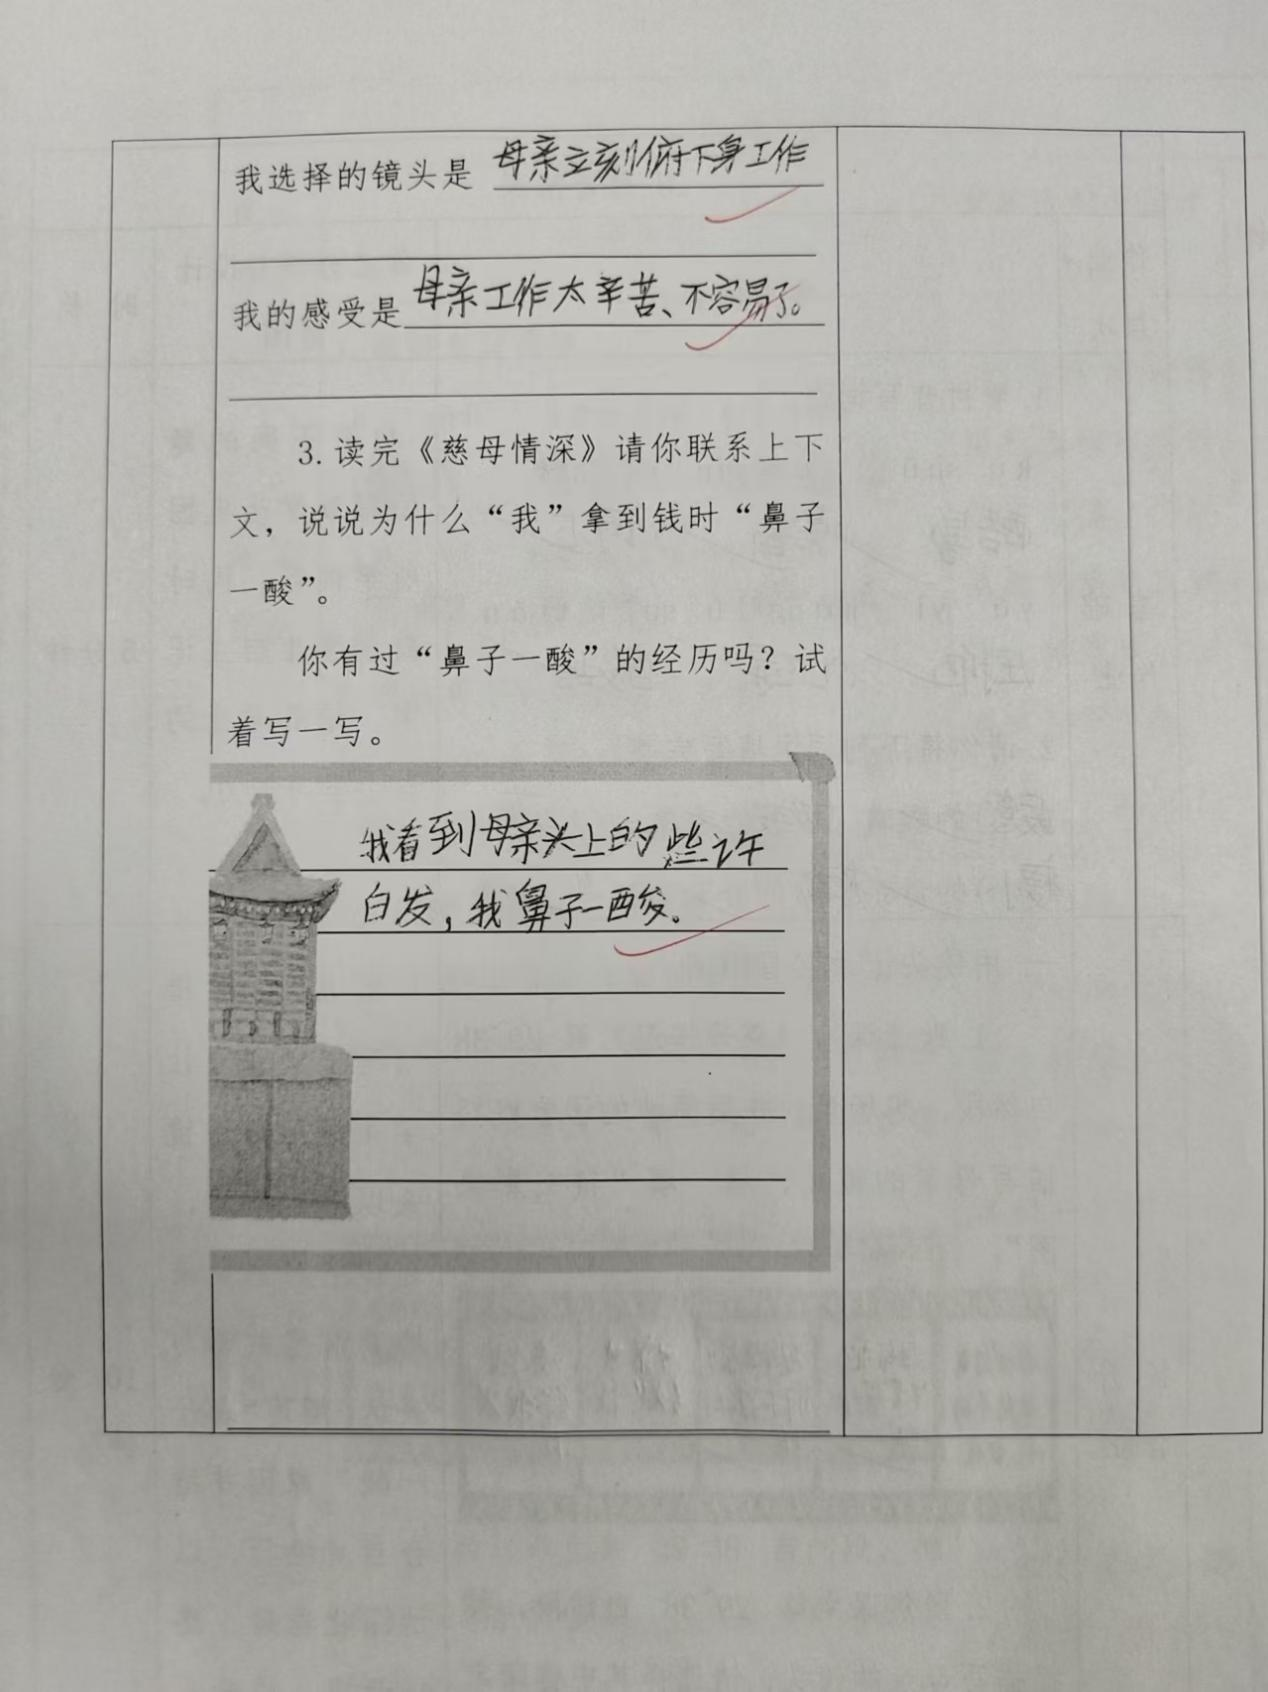 我选择的镜头是 母亲立刻俯下身工作
我的感受是 母亲工作太辛苦、不容易了。
3.读完《慈母情深》请你联系上下
文，说说为什么“我”拿到钱时“鼻子
一酸”。
你有过“鼻子一酸”的经历吗？试
着写一写。
我看到母亲头上的些许
白发，我鼻子一酸。